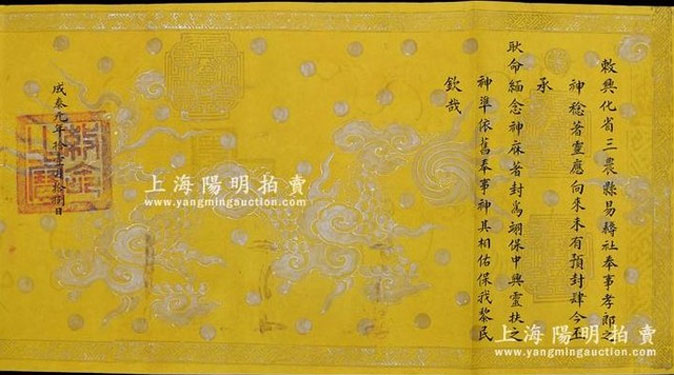 敕興化省三農縣易轉社奉事孝郎之
神稔著靈應向來未有預封肆今丕
承
耿命緬念神庥著封爲翊保中興靈扶之
神準依舊奉事神其相佑保我黎民
欽哉
成泰元年拾壹月拾捌日
敕命之寶
上海陽明拍賣
www.yangmingauction.com
上海陽明拍賣
www.yangmingauction.com